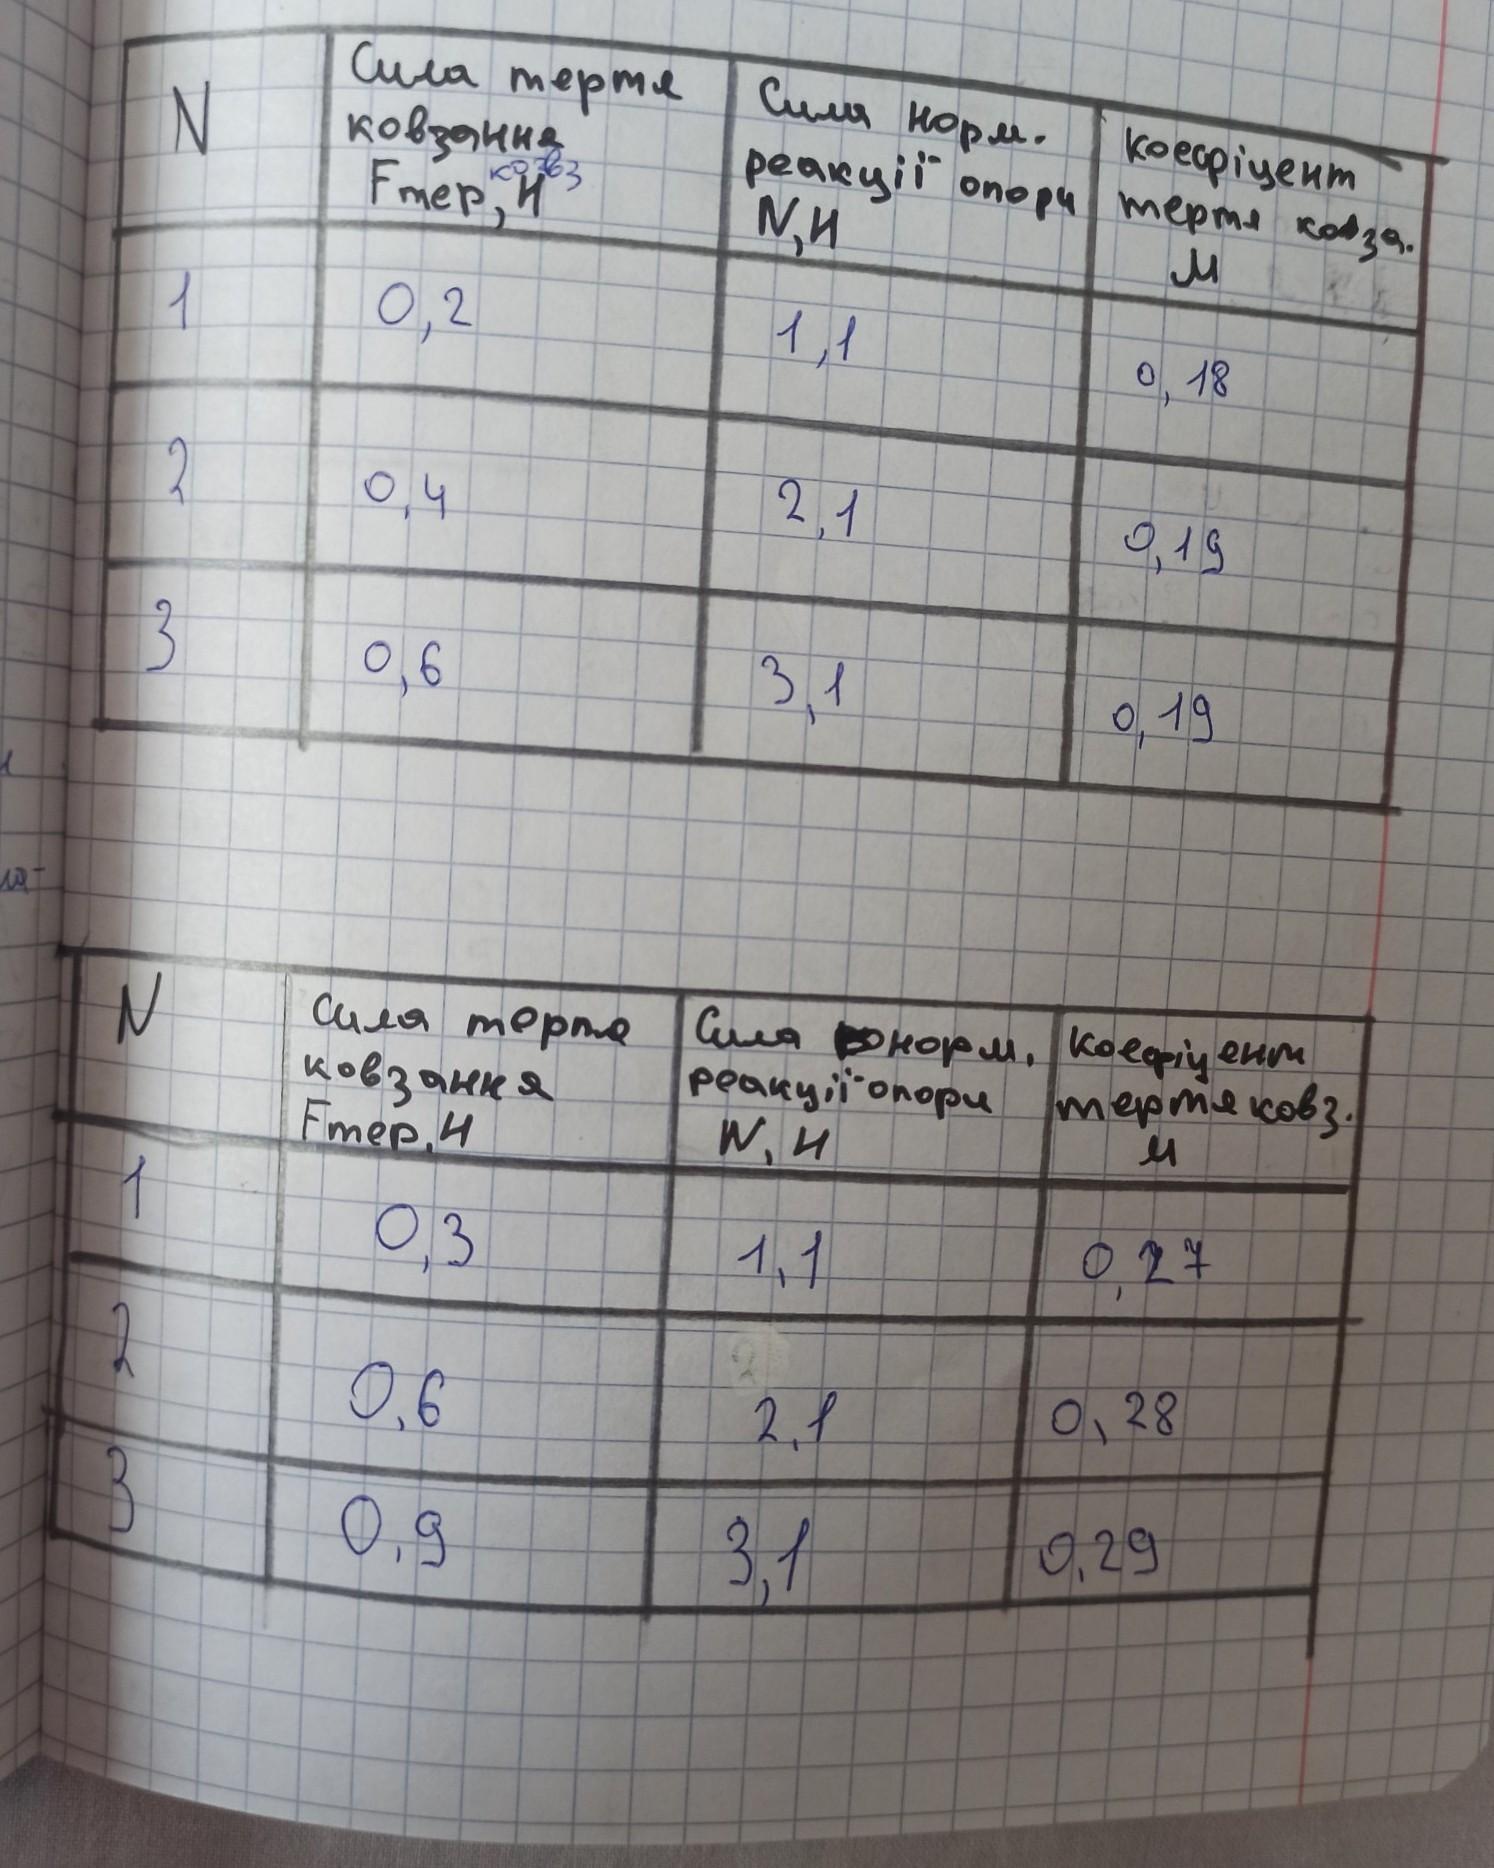 N
Сила тертя
ковзання
ковз
Fтер, Н
Сила норм.
реакції опори
N, Н
коефіцент
тертя ковза.
М
1
0,2
1,1
0,18
2
0,4
2,1
0,19
3
0,6
3,1
0,19
N
Сила тертя
ковзання
Fтер, Н
Сила норм.
реакції опори
N, Н
коефіцент
тертя ковз.
М
1
0,3
1,1
0,27
2
0,6
2,1
0,28
3
0,9
3,1
0,29